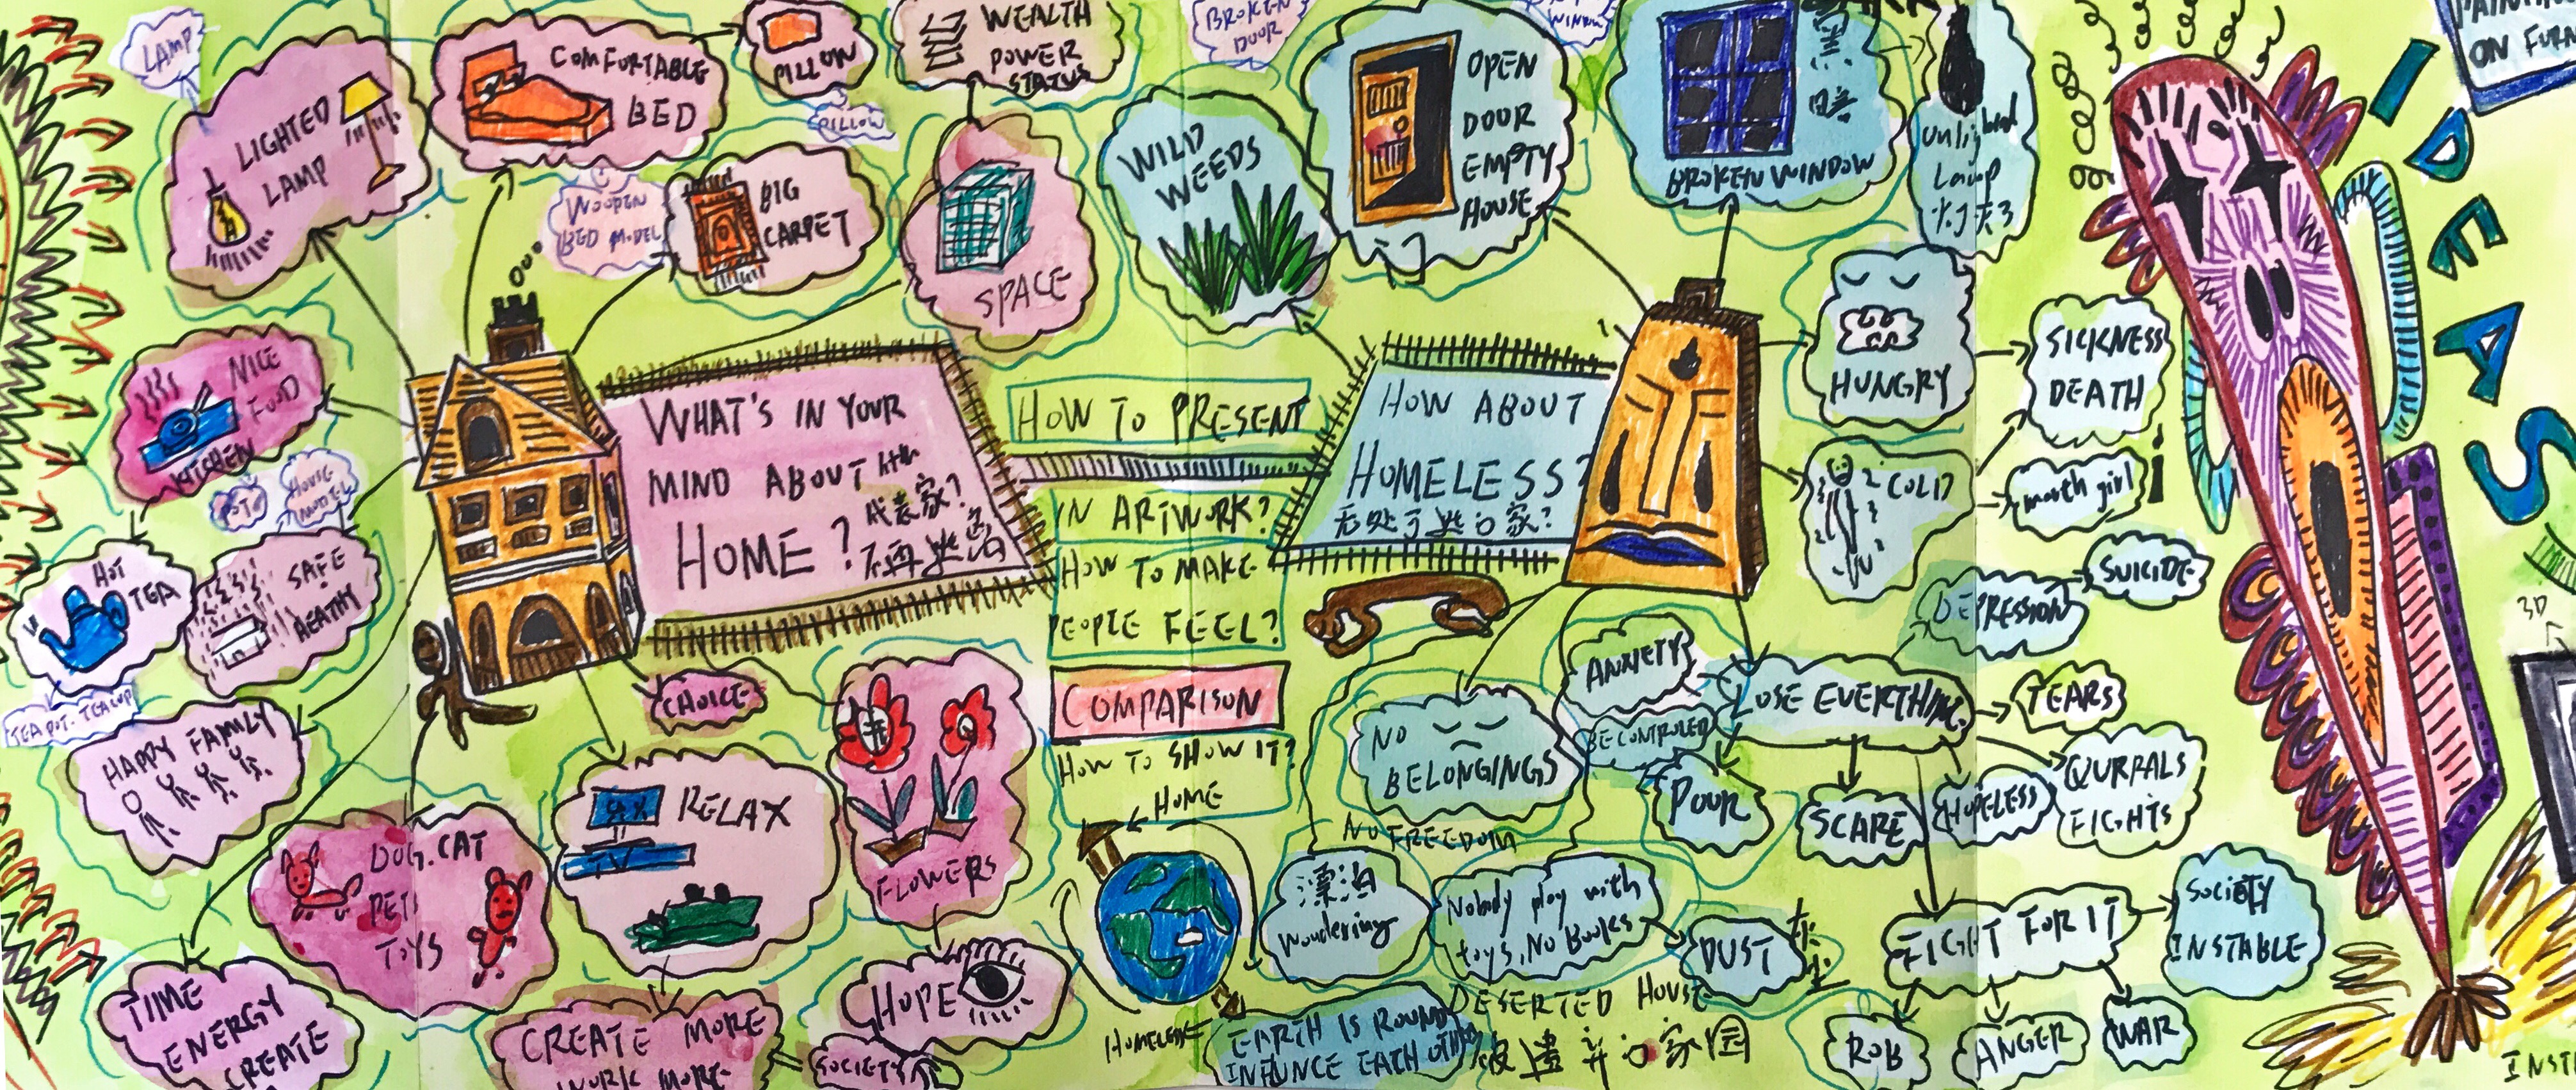 LAMP
LIGHTED
LAMP
COMFORTABLE
BED
PILLOW
PILLOW
WEALTH
POWER
STATUS
WOODEN
BED MODEL
BIG
CARPET
SPACE
BROKEN
DOOR
WILD
WEEDS
OPEN
DOOR
EMPTY
HOUSE
BROKEN WINDOW
黑
暗
Lamp
ON FURN
IDEAS
NICE
FOOD
KITCHEN
POTS
HOUSE
MODEL
HOT
TEA
SAFE
HEATHY
TEA POT. TEACUP
HAPPY FAMILY
WHAT'S IN YOUR
MIND ABOUT 什么
HOME? 代表家?
HOW TO PRESENT
IN ARTWORK?
HOW TO MAKE
PEOPLE FEEL?
COMPARISON
HOW TO SHOW IT?
HOME
HOMELESS
HOW ABOUT
HOMELESS?
HUNGRY
COLD
SICKNESS
DEATH
march girl
DEPRESSION
SUICIDE
ANXIETY
BE CONTROLED
LOSE EVERTHING
TEARS
QURRALS
FIGHTS
HOPELESS
SCARE
POOR
NO
BELONGINGS
NO FREEDOM
CHOICE
RELAX
TV
FLOWERS
DOG. CAT
PET
TOYS
TIME
ENERGY
CREATE
CREATE MORE
WORK MORE
SOCIETY
HOPE
漂泊
Wondering
Nobody play with
toys, No Books
DUST
灰
尘
DESERTED HOUSE
被遗弃的家园
EARTH IS ROUND
INFUNCE EATH OTHER
FIGHT FOR IT
SOCIETY
INSTABLE
ROB
ANGER
WAR
3D
INST